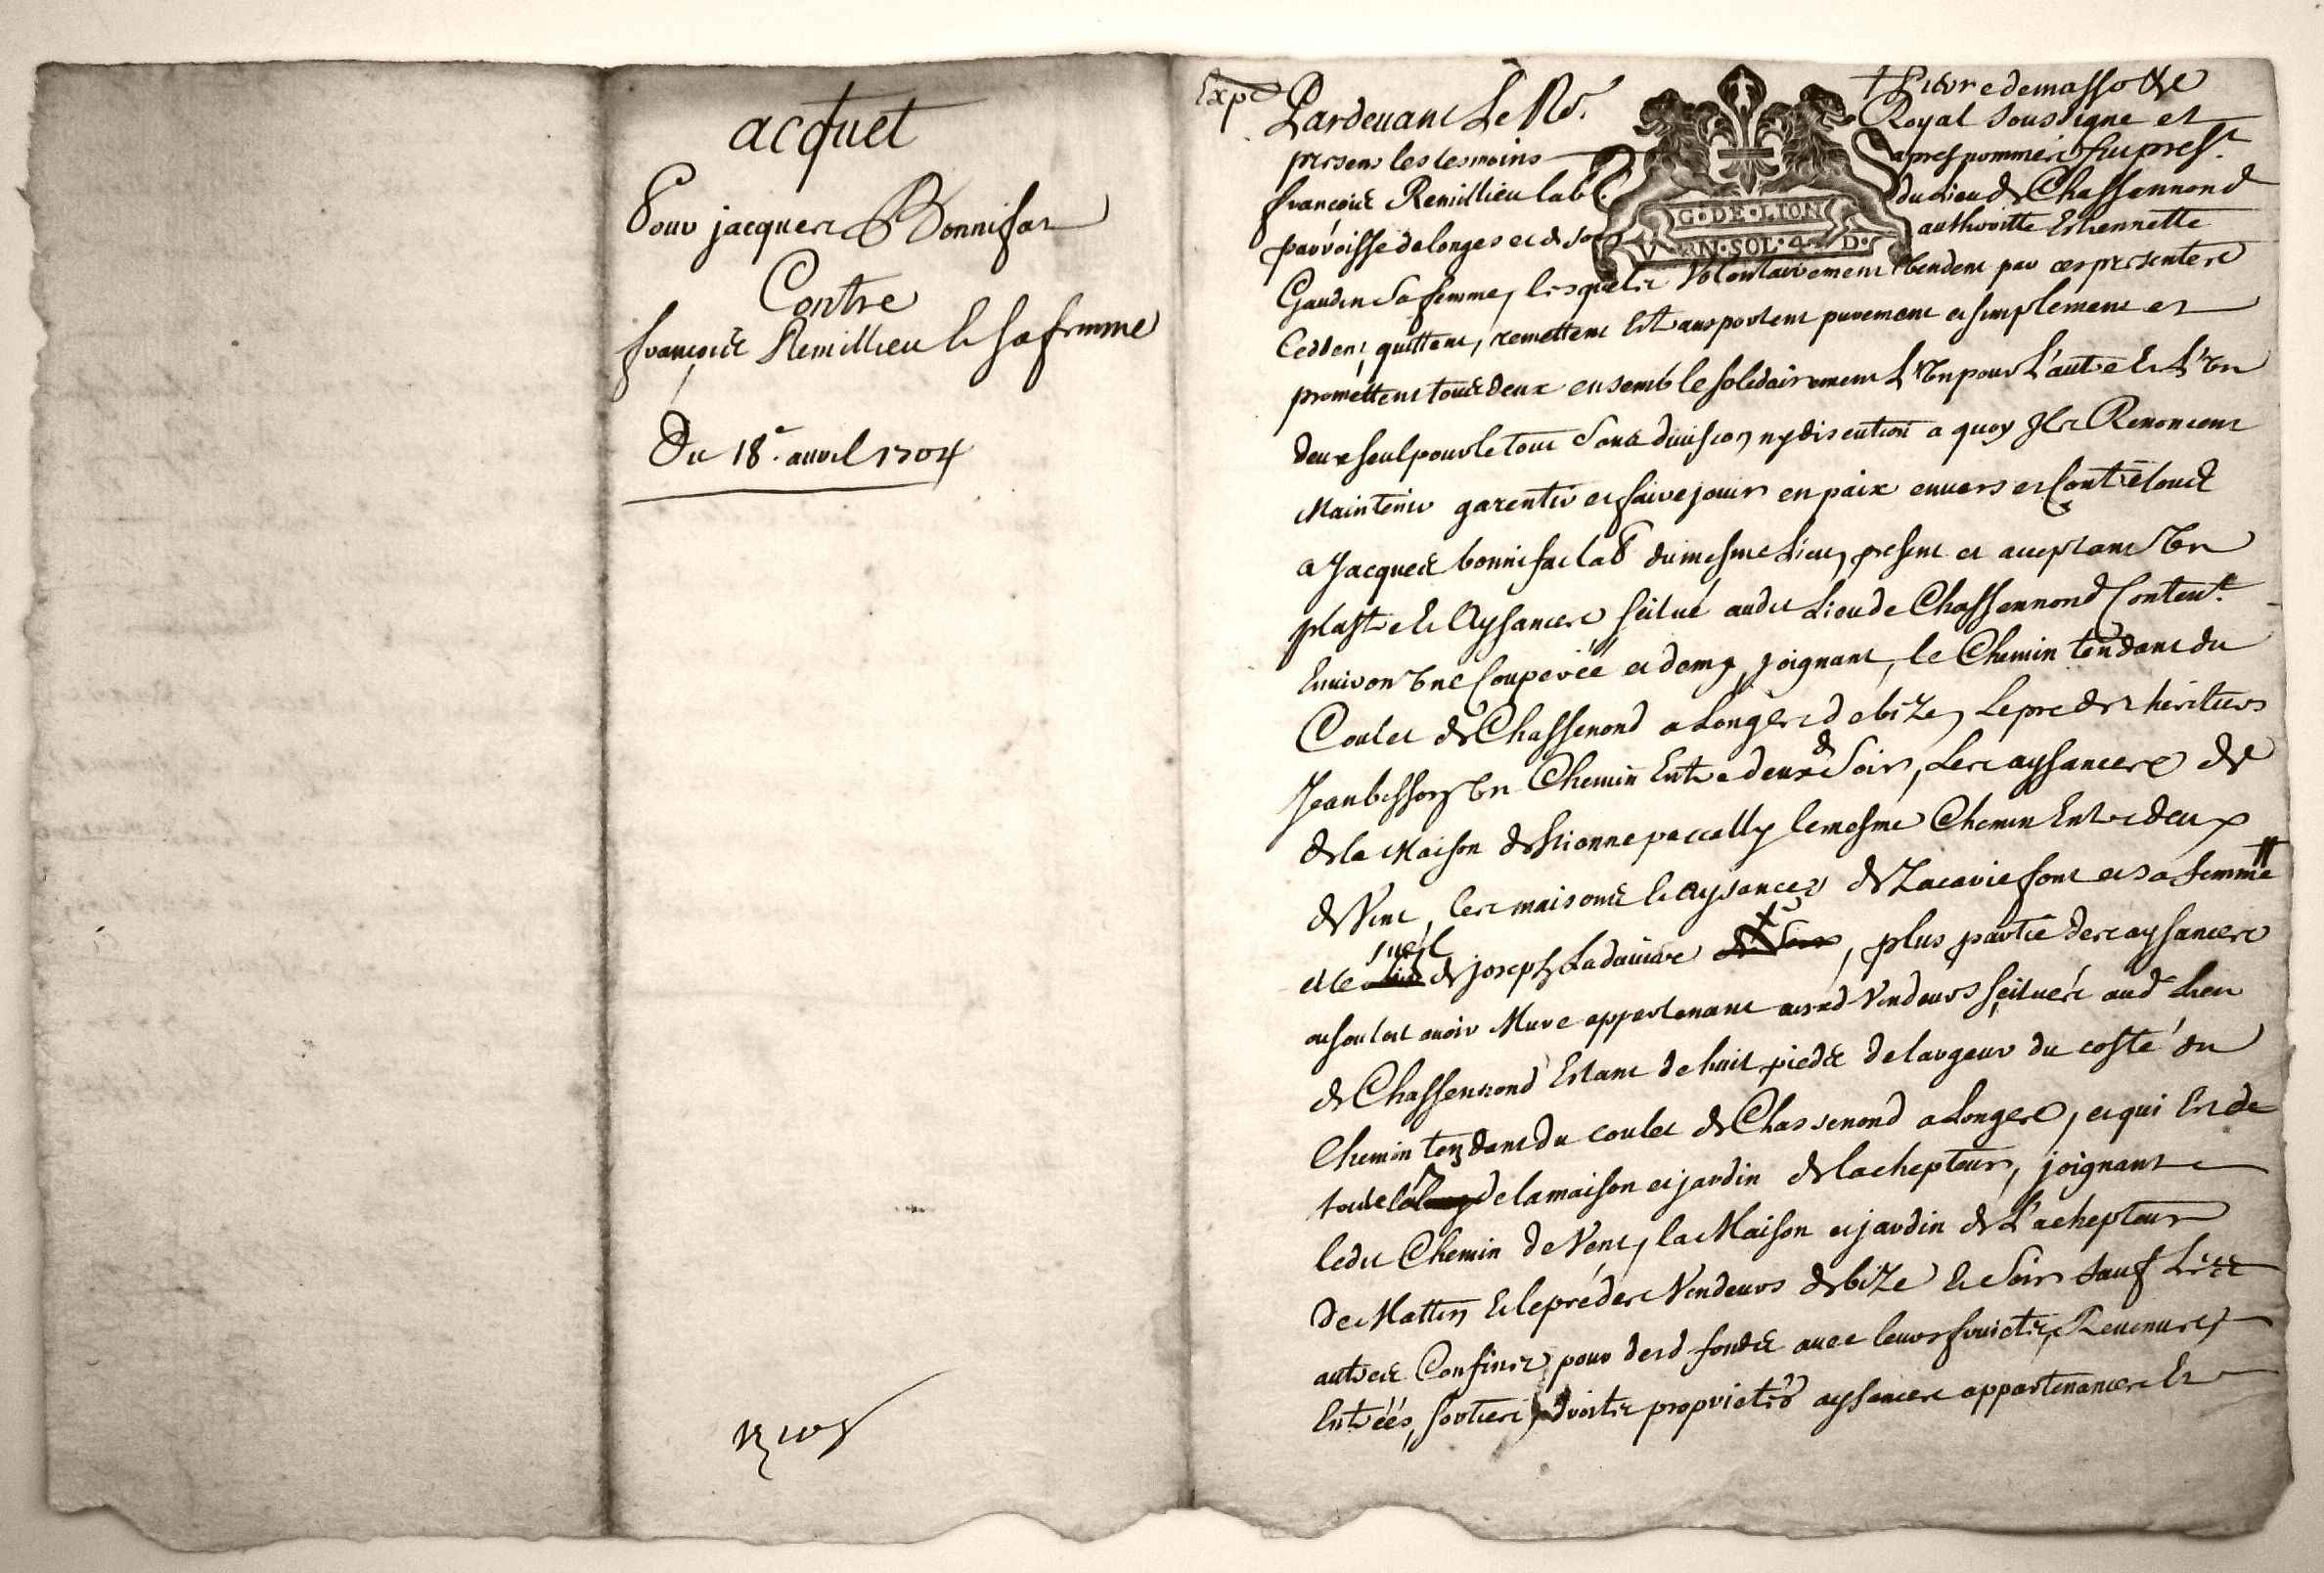 acquet
Pour jacques Bonnifat
Contre
francois Remillieu & sa femme
Du 18e avril 1704
Expé
Pardeuant Le No.re
Royal soussigne et
presens les tesmoins
apres nommés fut pres.t
francois Remillieu lab.r
du Lieu de Chassennond
parroisse de longes et de son
authoritte Estiennette
G·DE·LION
VN·SOL·4·D·
Gaudin sa femme, lesquels Volontairement Vendent par ces presentes
Ceddent, quittent, remettent Et transportent purement et simplement et
promettent tous deux ensemble solidairement L'Vn pour L'autre & L'Vn
deux seul pour le tout sans diuision ny discution a quoy Ils Renoncent
Maintenir garentir et faire jouir en paix enuers et Contre tous
a Jacques bonnifat lab.r du mesme Lieu, present et acceptant Vn
plastre & Aysances scitué audit Lieu de Chassennond Conten.t
Enuiron Vne Couperée et demy, joignant, le Chemin tendant du
Coulet de Chassenond a Longes de bize, Le pre des heritiers
Jean besson Vn Chemin Entre deux de Soir, Les aysances de
de la Maison de le mesme Chemin Entre deux
de Vent, les maisons & Aysances de Zacarie font et sa femme
et le sueil de joseph Ladauiere, plus partie des aysances
Mure appartenant ausd Vendeurs scitués aud Lieu
de Chassennond Estant de huit pieds de largeur du costé du
Chemin tendant du coulet de Chassenond a Longes, et qui Est de
de la maison et jardin de lachepteur, joignant
ledit Chemin de Vent, la Maison et jardin de L'achepteur
de Mattin Et le pré des Vendeurs de bize & Soir sauf Les
autres Confins, pour desd fonds auec leurs fruicts, Reuenus,
Entrées, sorties, droits proprietés aysances appartenances Et